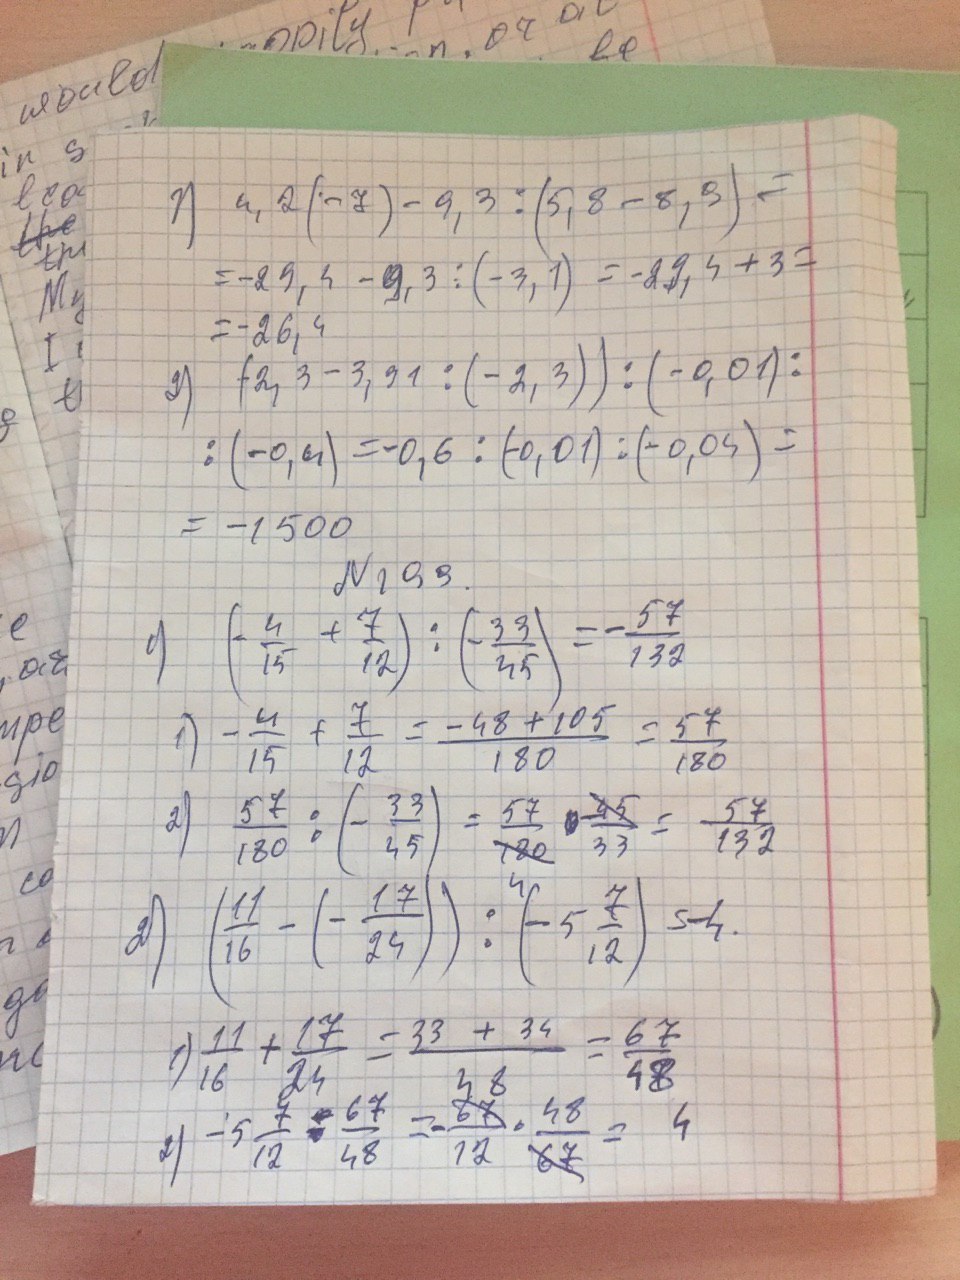 would
in s
1) 4,2(-7)-9,3:(5,8-8,9)=
=-29,4-9,3:(-3,1)=-29,4+3=
=-26,4
2) (-2,3-3,91:(-2,3)):(-0,01):
:(-0,4)=-0,6:(-0,01):(-0,04)=
=-1500
N199.
1) (-4/15+7/12):(-33/45)=-57/132
1) -4/15+7/12=(-48+105)/180=57/180
2) 57/180:(-33/45)=57/180·45/33=57/132
4
2) (11/16-(-17/24)):(-5 7/12)=-4.
1) 11/16+17/24=(33+34)/48=67/48
2) -5 7/12:67/48=-67/12·48/67=4